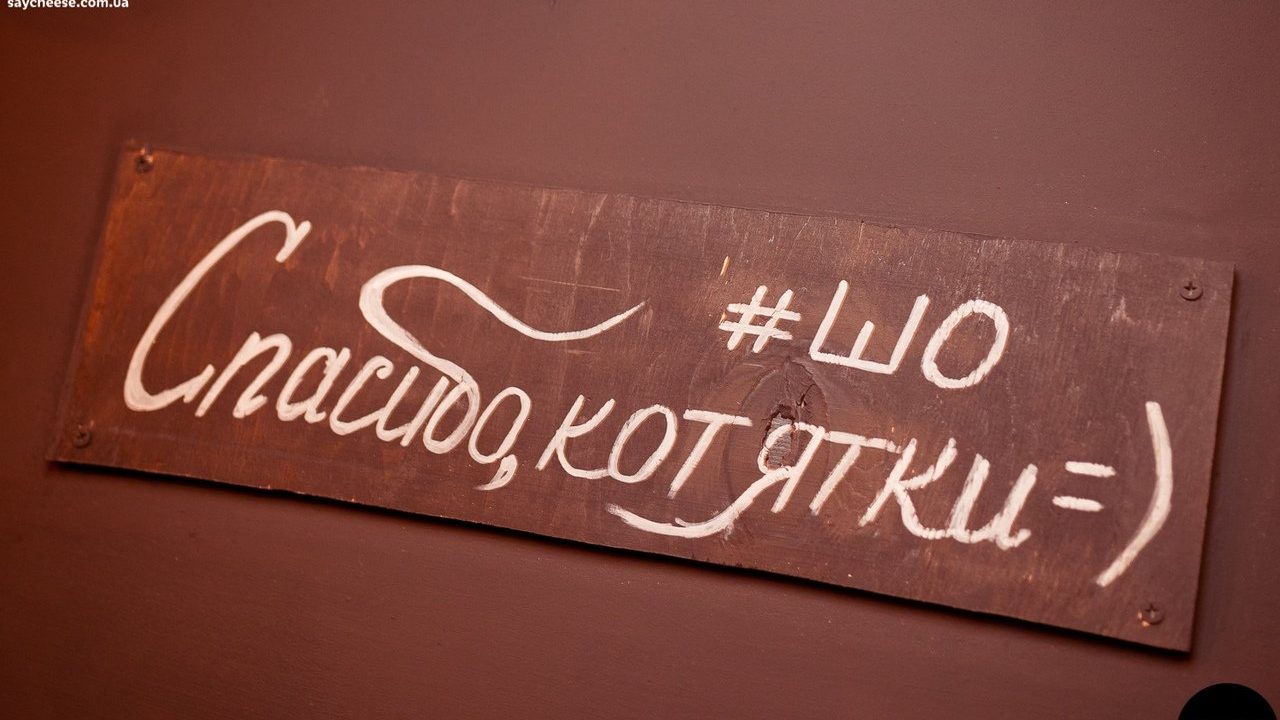 saycheese.com.ua
#шо
Спасибо, котятки=)